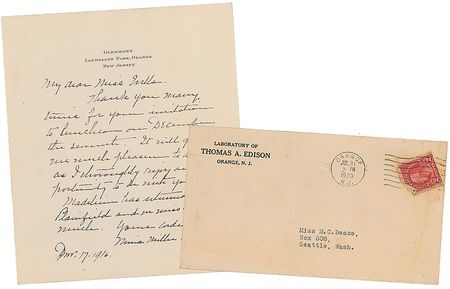 GLENMONT
LLEWELLYN PARK, ORANGE
NEW JERSEY
My dear Miss
Thank you many
times for your invitation
to luncheon on December
the seventh. It will g
me much pleasure to
as I thoroughly enjoy an
portunity to be with you
Madeleine has returned
Plainfield and we miss
much. Yours
Mina Miller
Nov. 17. 1916.
LABORATORY OF
THOMAS A. EDISON
ORANGE, N. J.
ORANGE
2 PM
1923
N.J.
Miss M.C. Deane,
Box 508,
Seattle, Wash.